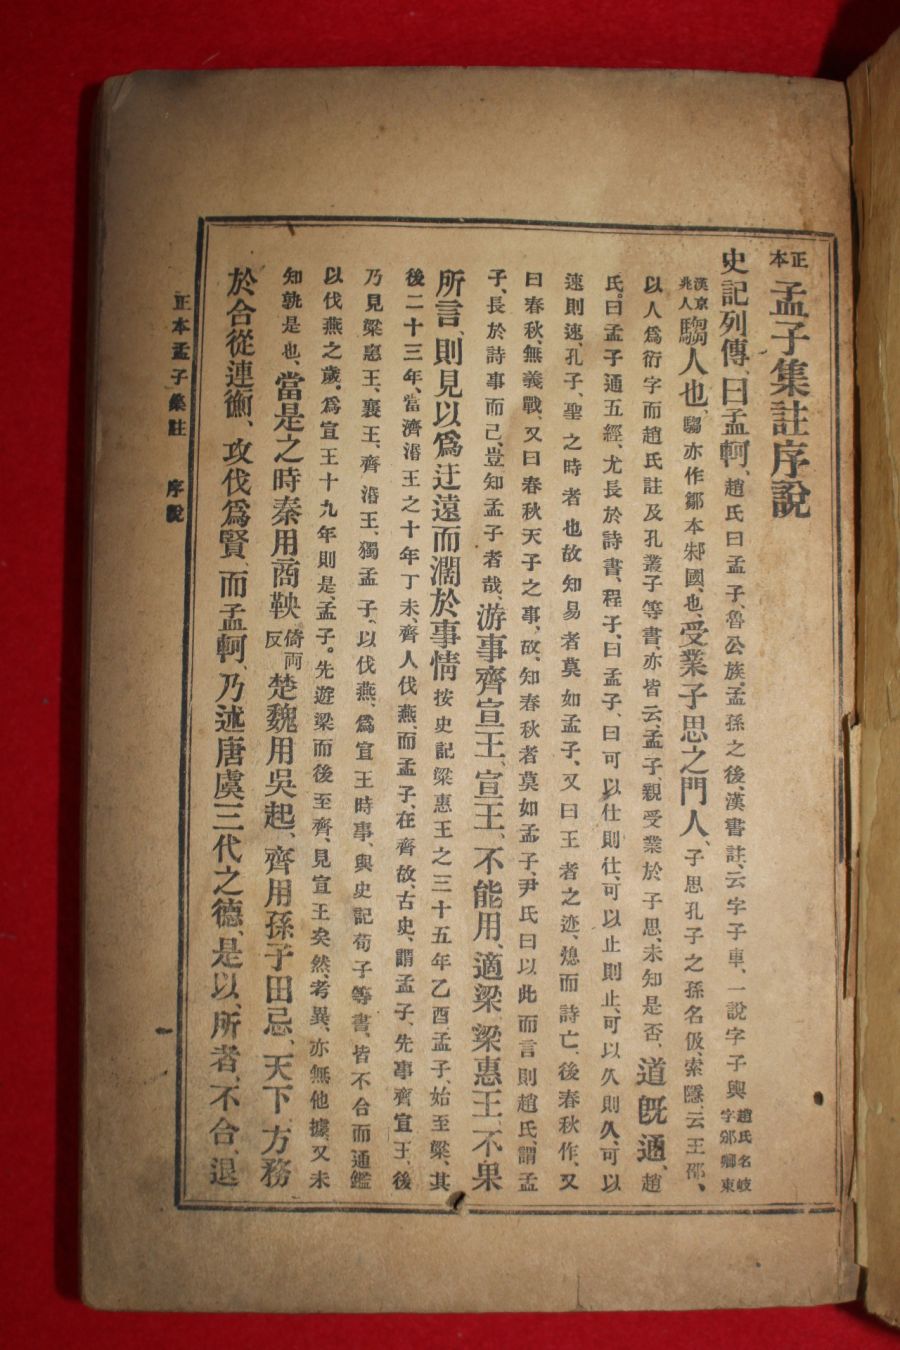 正本 孟子集註序說
史記列傳、曰孟軻、趙氏曰孟子、魯公族、孟孫之後、漢書註、云字子車、一說字子輿趙氏名岐字邠卿東
漢京兆人騶人也、騶亦作鄒本邾國、也、受業子思之門人、子思孔子之孫名伋、索隱、云王邵、
以人爲衍字而趙氏註及孔叢子等書、亦皆云、孟子、親受業於子思、未知是否、道旣通、趙
氏。曰孟子通五經、尤長於詩書、程子、曰孟子、曰可以仕則仕、可以止則止、可以久則久、可以
速則速、孔子、聖之時者也故知易者莫如孟子、又曰王者之迹、熄而詩亡、後春秋作、又
曰春秋、無義戰、又曰春秋天子之事、故、知春秋者莫如孟子、尹氏曰以此而言則趙氏、謂孟
子、長於詩事而已、豈知孟子者哉、游事齊宣王、宣王、不能用、適梁、梁惠王、不果
所言、則見以爲迂遠而濶於事情按史記梁惠王之三十五年乙酉孟子、始至梁、其
後二十三年、當濟湣王之十年丁未、齊人伐燕、而孟子、在齊故、古史、謂孟子、先事齊宣王、後
乃見梁惠王、襄王、齊湣王、獨孟子、以伐燕、爲宣王時事、與史記荀子等書、皆不合而通鑑
以伐燕之歲。爲宣王十九年則是、孟子。先遊梁而後至齊、見宣王矣然、考異、亦無他據、又未
知孰是也、當是之時秦用商鞅倚兩反楚魏用吳起、齊用孫子田忌、天下、方務
於合從連衡、攻伐爲賢、而孟軻、乃述唐虞三代之德、是以、所者、不合、退
正本孟子集註 序說